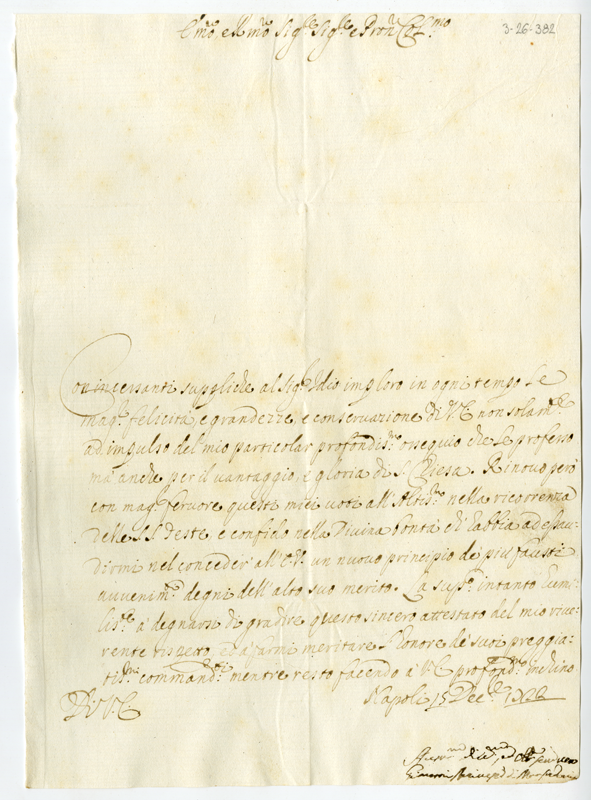 3-26-382
E'mo, e R'mo Sig.re Sig.re e Pron Col.mo
Con incessanti suppliche al Sig.r Idio imploro in ogni tempo le
mag.ri felicità, e grandezze, e conservazione di V.E. non solam.te
ad impulso del mio particolar profondis.o ossequio che le professo
ma anche per il vantaggio, e gloria di S. Chiesa. Rinovo però
con mag.r fervore questi miei voti all'Altis.mo nella ricorrenza
delle SS. feste, e confido nella Divina bontà di habbia ad esau-
dirmi nel conceder all'E.V. un nuovo principio de più fausti
avvenim.ti degni dell'alto suo merito. La sup.co intanto humi-
lis.te à degnarsi di gradire questo sincero attestato del mio rive-
rente rispetto, ed à farmi meritare l'honore de suoi preggia-
tis.mi command.ti mentre resto facendo à V.E. profond.mo inchino
Napoli 15 Dec.re
Di V.E.